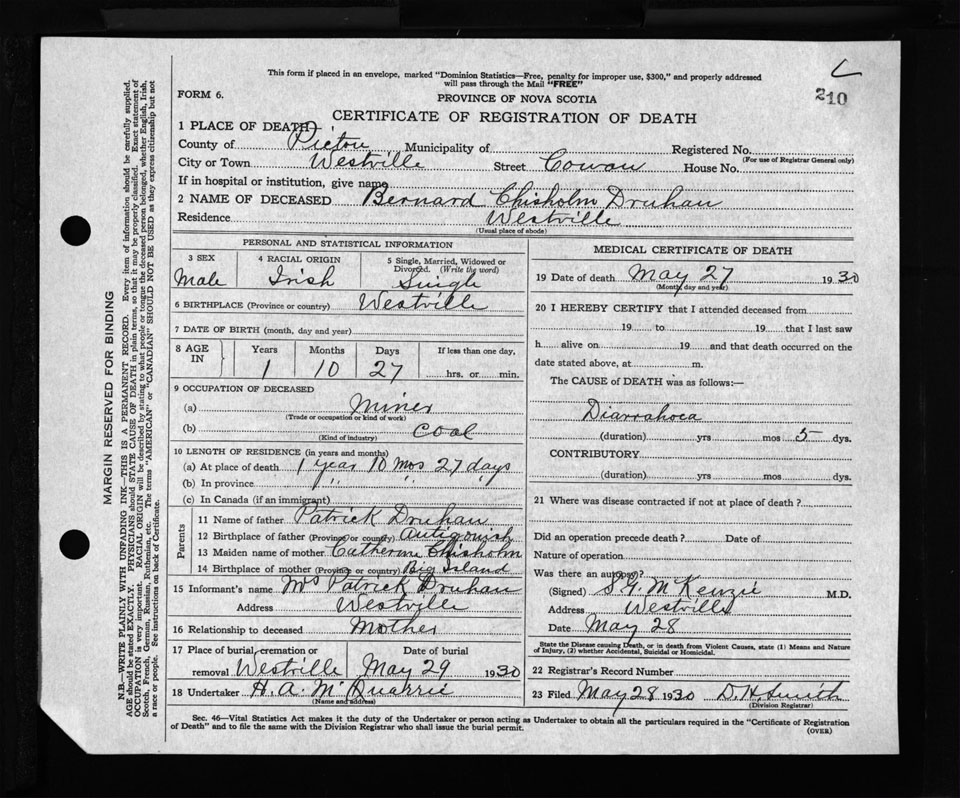 This form if placed in an envelope, marked "Dominion Statistics—Free, penalty for improper use, $300," and properly addressed
will pass through the Mail "FREE"
FORM 6.
PROVINCE OF NOVA SCOTIA
210
CERTIFICATE OF REGISTRATION OF DEATH
1 PLACE OF DEATH
County of Pictou Municipality of Registered No.
(For use of Registrar General only)
City or Town Westville Street Cowan House No.
If in hospital or institution, give name
2 NAME OF DECEASED Bernard Chisholm Druhan
Residence Westville
(Usual place of abode)
PERSONAL AND STATISTICAL INFORMATION
3 SEX 4 RACIAL ORIGIN 5 Single, Married, Widowed or Divorced. (Write the word)
Male Irish Single
6 BIRTHPLACE (Province or country) Westville
7 DATE OF BIRTH (month, day and year)
8 AGE IN Years Months Days If less than one day,
1 10 27 hrs. or min.
9 OCCUPATION OF DECEASED
(a) Miner
(Trade or occupation or kind of work)
(b) Coal
(Kind of industry)
10 LENGTH OF RESIDENCE (in years and months)
(a) At place of death 1 year 10 mos 27 days
(b) In province " " "
(c) In Canada (if an immigrant)
Parents
11 Name of father Patrick Druhan
12 Birthplace of father (Province or country) Antigonish
13 Maiden name of mother Catherine Chisholm
14 Birthplace of mother (Province or country) Big Island
15 Informant's name Mrs Patrick Druhan
Address Westville
16 Relationship to deceased Mother
17 Place of burial, cremation or removal Westville Date of burial May 29 1930
18 Undertaker H. A. McQuarrie
(Name and address)
MEDICAL CERTIFICATE OF DEATH
19 Date of death May 27 1930
(Month, day and year)
20 I HEREBY CERTIFY that I attended deceased from
19 to 19 that I last saw
h alive on 19 and that death occurred on the
date stated above, at m.
The CAUSE of DEATH was as follows:—
Diarrahoea
(duration) yrs mos 5 dys.
CONTRIBUTORY
(duration) yrs mos dys.
21 Where was disease contracted if not at place of death?
Did an operation precede death? Date of
Nature of operation
Was there an autopsy?
(Signed) S. G. McKenzie M.D.
Address Westville
Date May 28
State the Disease causing Death, or in death from Violent Causes, state (1) Means and Nature
of Injury, (2) whether Accidental, Suicidal or Homicidal.
22 Registrar's Record Number
23 Filed May 28 1930 D. H. Smith
(Division Registrar)
Sec. 46—Vital Statistics Act makes it the duty of the Undertaker or person acting as Undertaker to obtain all the particulars required in the "Certificate of Registration
of Death" and to file the same with the Division Registrar who shall issue the burial permit.
(OVER)
MARGIN RESERVED FOR BINDING
N.B.—WRITE PLAINLY WITH UNFADING INK—THIS IS A PERMANENT RECORD. Every item of information should be carefully supplied.
AGE should be stated EXACTLY. PHYSICIANS should STATE CAUSE OF DEATH in plain terms, so that it may be properly classified. Exact statement of
OCCUPATION is very important. RACIAL ORIGIN will be described by stating to what people or tongue the deceased person belonged, whether English, Irish,
Scotch, French, German, Russian, Ruthenian, etc. The terms "AMERICAN" or "CANADIAN" SHOULD NOT BE USED as they express citizenship but not
a race or people. See instructions on back of Certificate.